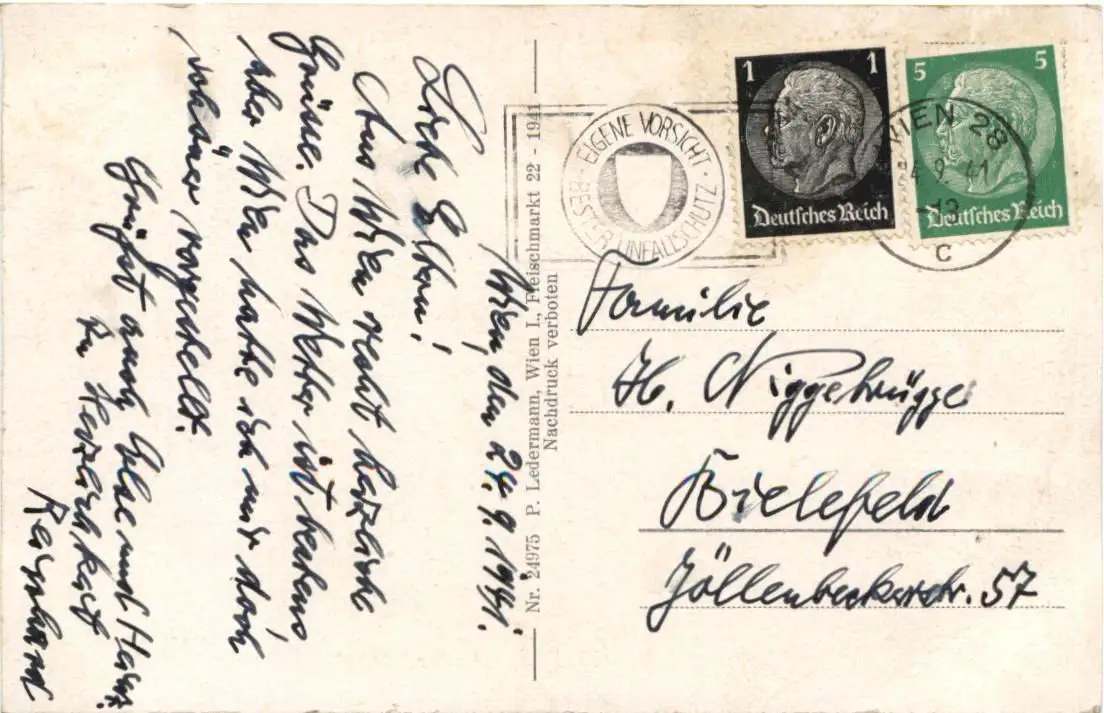 Wien, den 24.9.1941.
Liebe Eltern!
Aus Wien recht herzliche
Grüsse. Das Wetter ist bestens
aber Wien hatte ich mir doch
schöner vorgestellt.
Grüßt auch Else und Heinz
In Herzlichkeit
Reinhard
Nr. 24975 P. Ledermann, Wien I., Fleischmarkt 22 - 1941
Nachdruck verboten
EIGENE VORSICHT · BESTER UNFALLSCHUTZ ·
1 1
Deutsches Reich
5 5
Deutsches Reich
WIEN 28
4. 9. 41
C
Familie
H. Niggebrügge
Bielefeld
Jöllenbeckerstr. 57